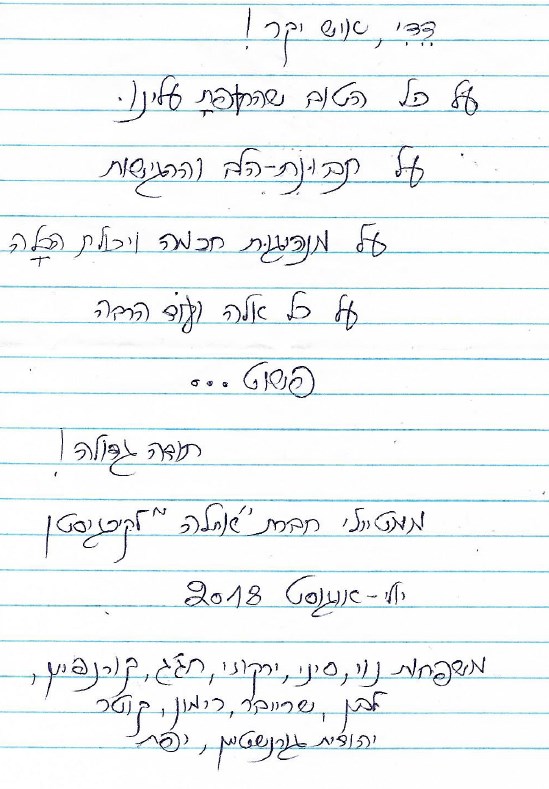 דדי, איש יקר!
על כל הטוב שהרעפת עלינו.
על קבוענת-הלב והרגישות
על מנהיגות חכמה ויכולת הכלה
על כל אלה ועוד הרבה
פשוט...
תודה גדולה!
ממטיילי חברת "אתלה" לקירגיסטן
יולי-אוגוסט 2018
משפחות נוי, סיני, ירקוני, חגג, קורנפיין,
לבן, שרייבר, רימון, קוטר
יהודית גורנשטיין, יפת